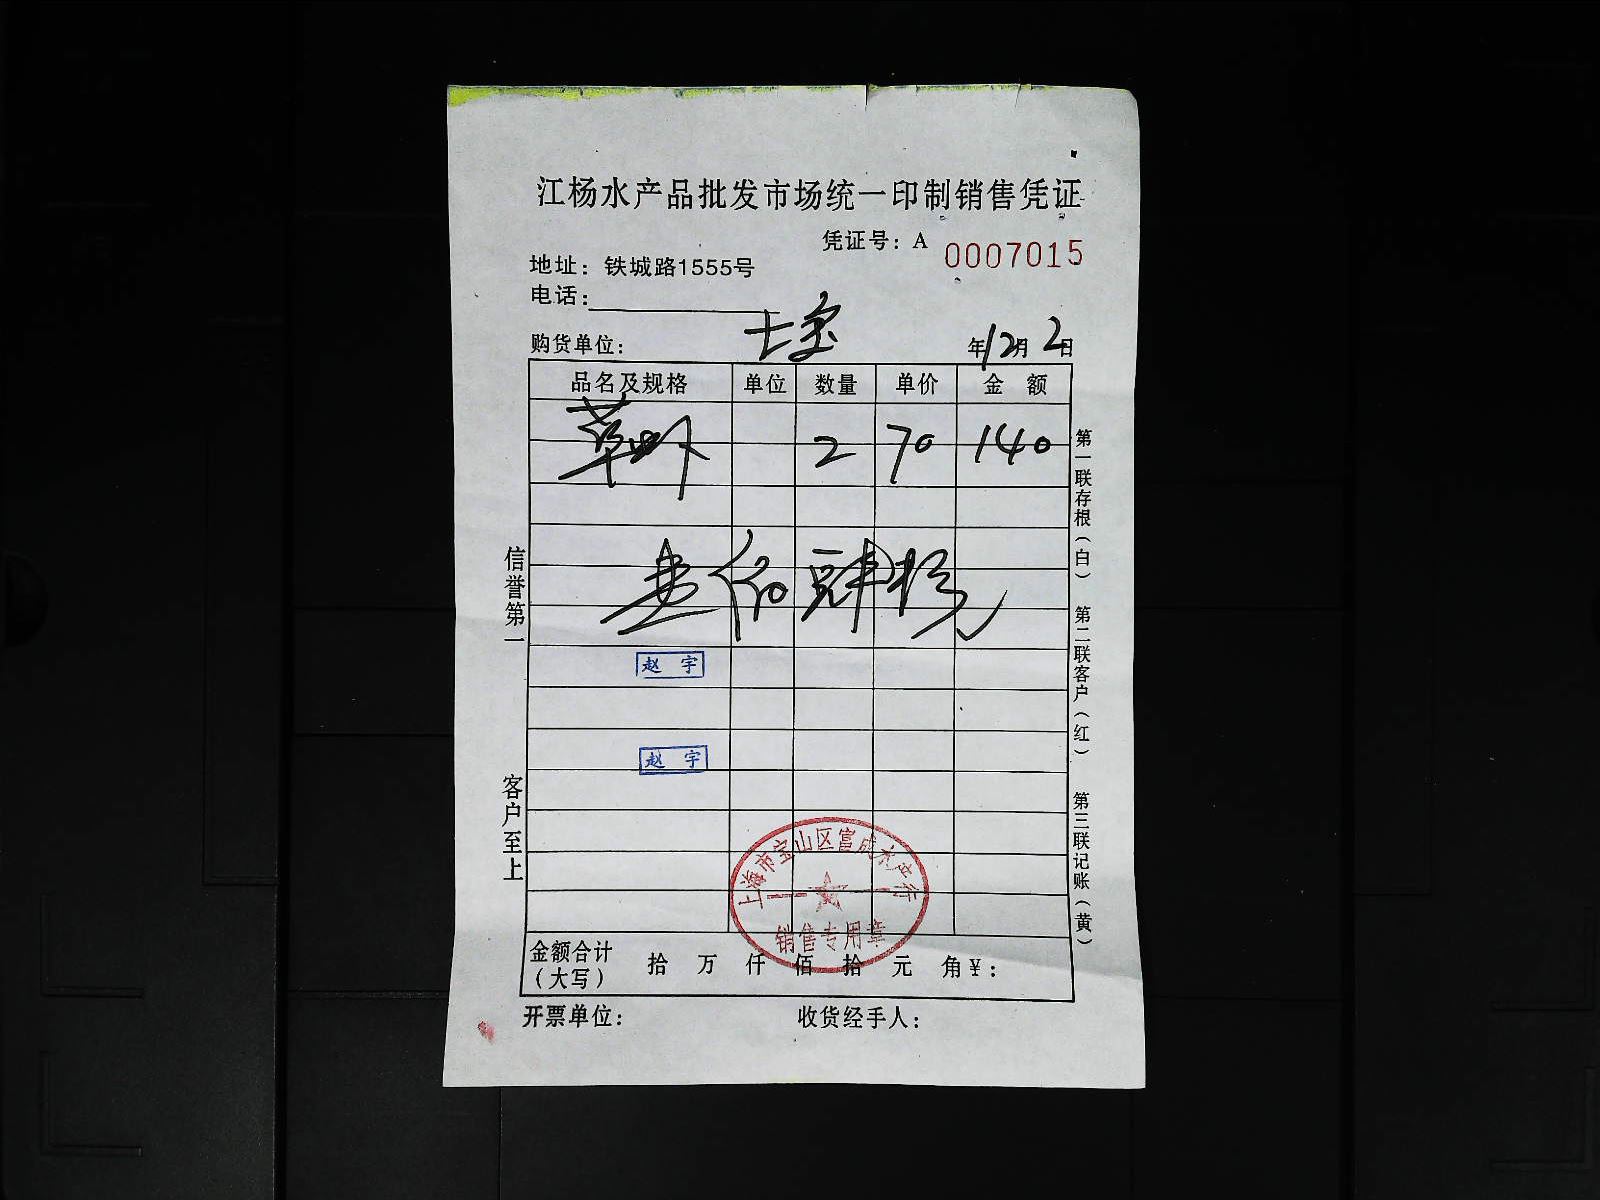 江杨水产品批发市场统一印制销售凭证
凭证号：A 0007015
地址：铁城路1555号
电话：
购货单位：七宝 年12月2日
品名及规格 单位 数量 单价 金额
草虾 2 70 140
壹佰肆拾元
赵宇
赵宇
上海市宝山区富成水产行
销售专用章
金额合计（大写） 拾 万 仟 佰 拾 元 角¥：
开票单位： 收货经手人：
信誉第一 客户至上
第一联存根（白） 第二联客户（红） 第三联记账（黄）